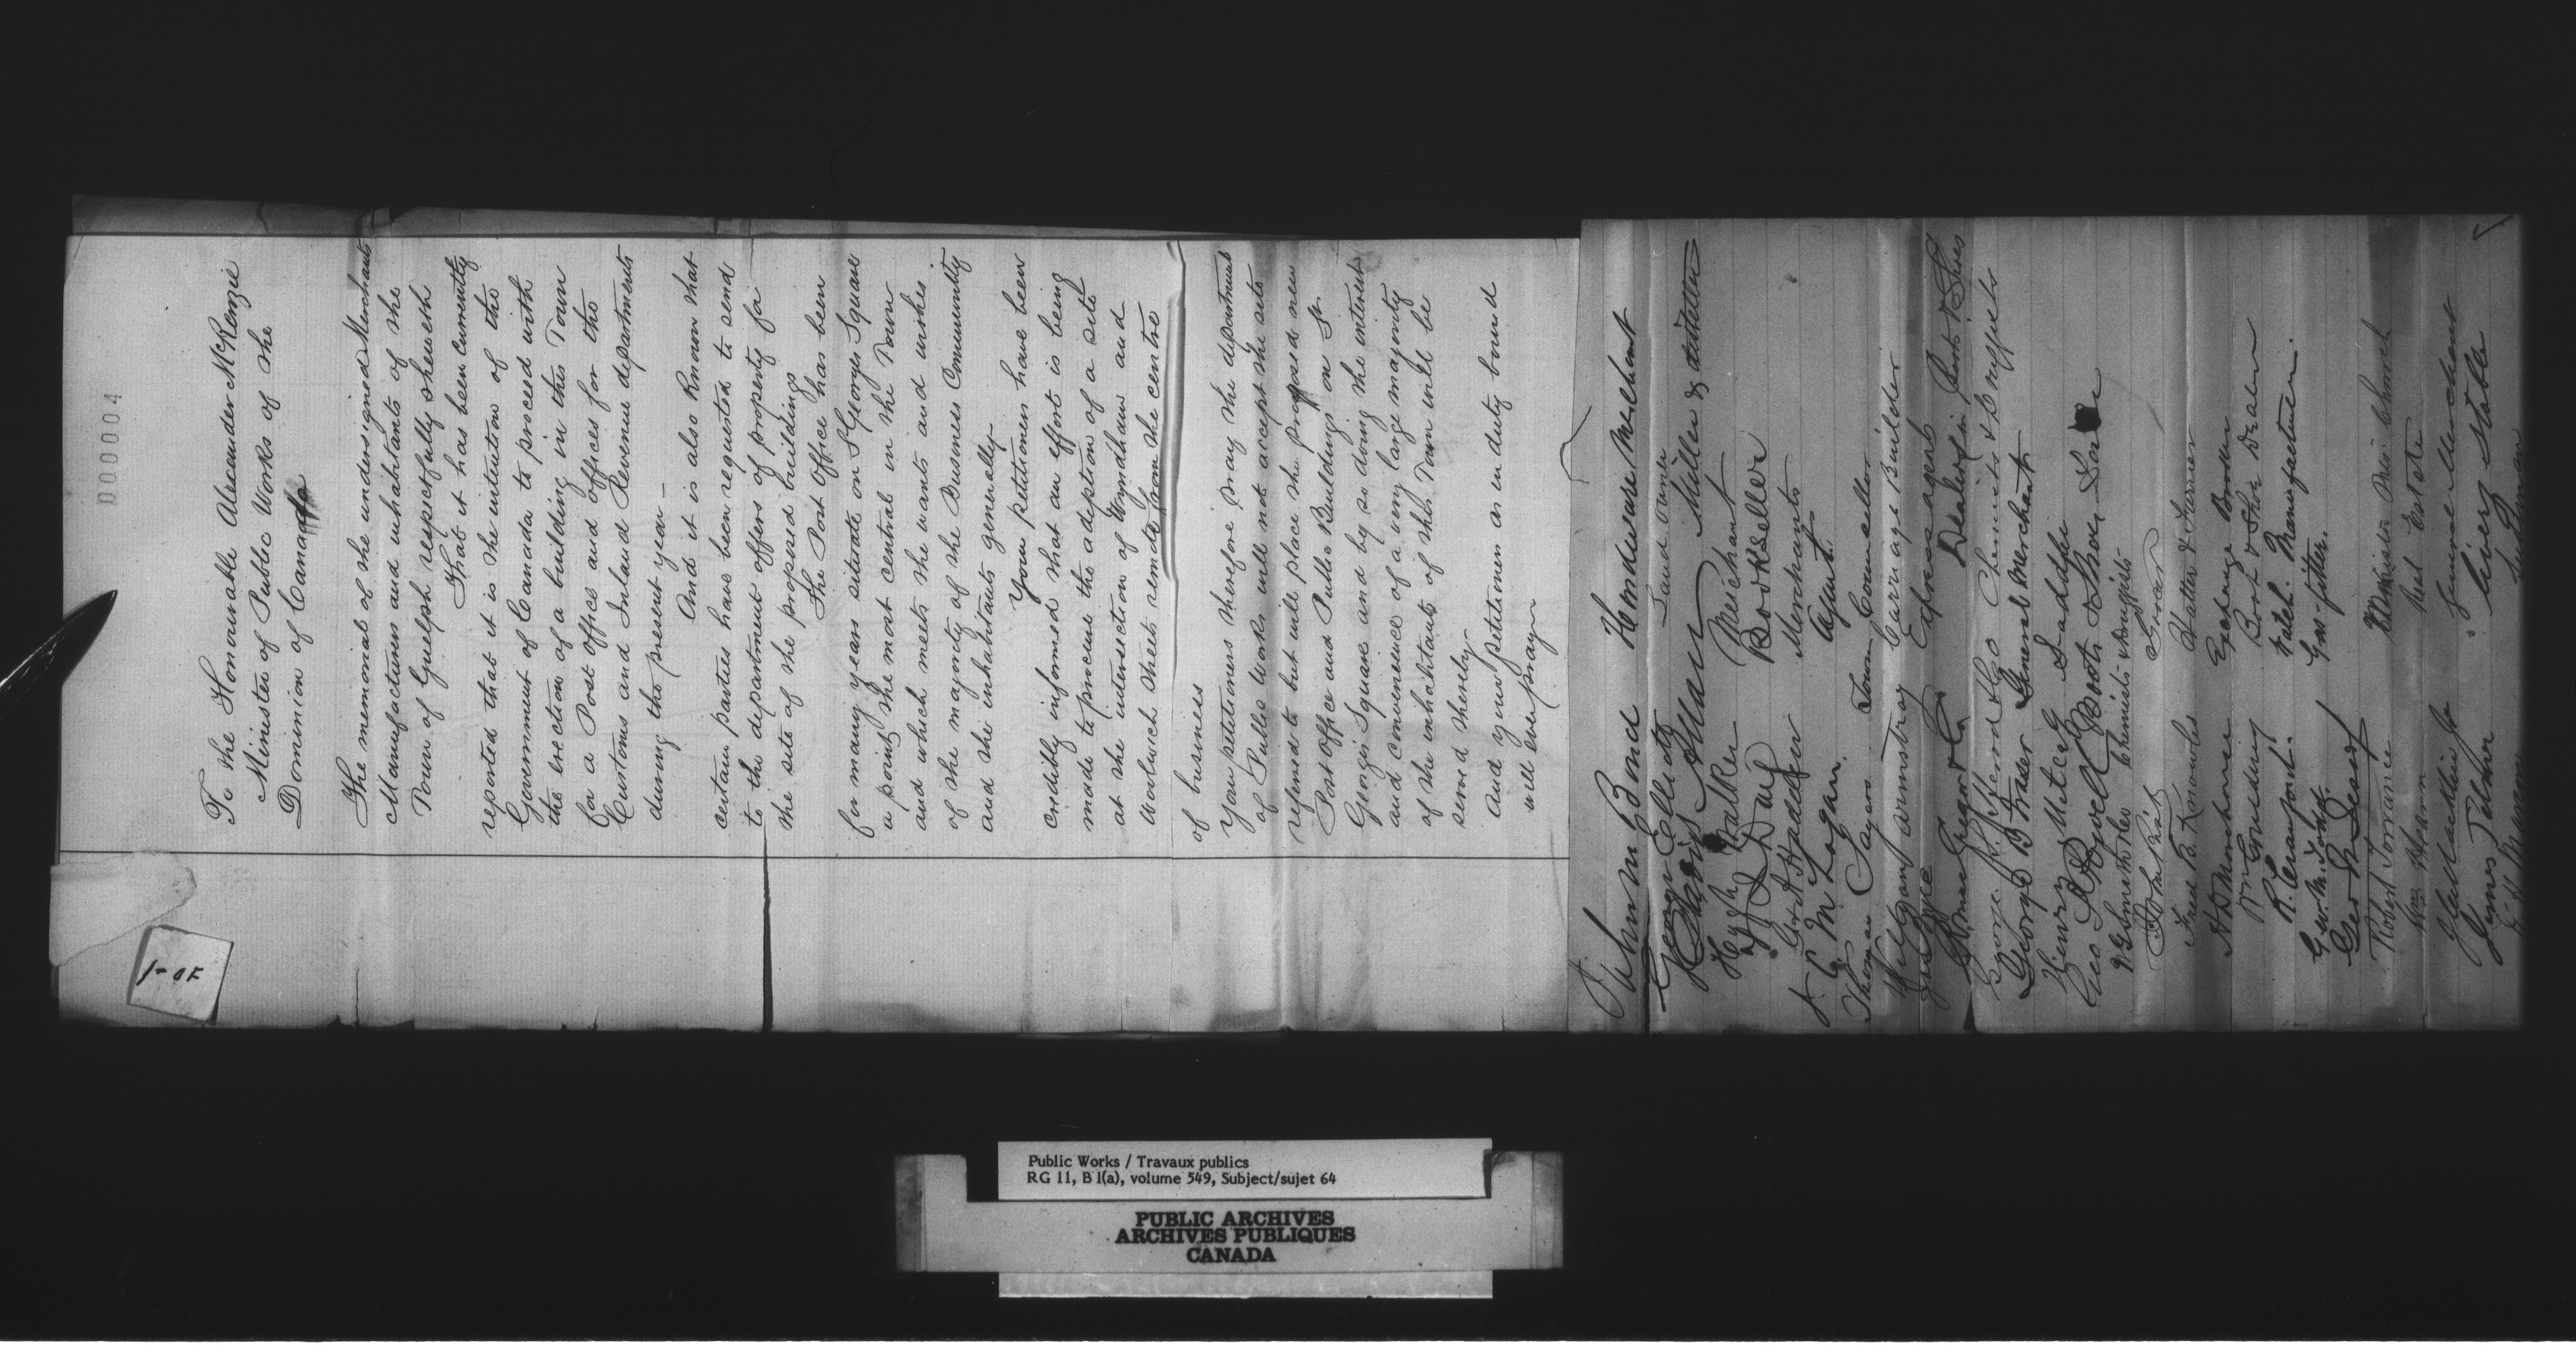 000004
To the Honourable Alexander McKenzie
Minister of Public Works of the
Dominion of Canada
The memorial of the undersigned Merchants
Manufacturers and inhabitants of the
Town of Guelph respectfully sheweth
That it has been currently
reported that it is the intention of the
Government of Canada to proceed with
the erection of a building in this Town
for a Post office and offices for the
Customs and Inland Revenue departments
during the present year —
And it is also known that
certain parties have been requested to send
to the department offers of property for
the site of the proposed buildings
The Post office has been
for many years situate on St Georges Square
a point the most central in the Town
and which meets the wants and wishes
of the majority of the Business Community
and the inhabitants generally —
Your petitioners have been
credibly informed that an effort is being
made to procure the adoption of a site
at the intersection of Wyndham and
Woolwich Streets remote from the centre
of business
Your petitioners therefore pray the department
of Public Works will not accept the site
referred to but will place the proposed new
Post office and Public Buildings on St
Georges Square and by so doing the interest
and convenience of a very large majority
of the inhabitants of this Town will be
served thereby
And your petitioners as in duty bound
will ever pray
John M Bond Hardware Merchant
George Elliott Land owner
David Allan Miller & distiller
Hugh Walker Merchant
Day Bookseller
G & A Hadden Merchants
J. C. M Logan. Agent
Thomas Sayers Town Councellor
Armstrong Carriage Builder
Express agent
McGregor & Co Dealers in Boots & Shoes
George & Co Chemists & Druggists
George B Fraser General Merchant
Henry Metcalf Saddler
Geo S Powell Boot & Shoe Store
Chemists & Druggists
John Grocer
Fred B. Knowles Hatter & Furrier
Exchange Broker
Wm Goulding Boot & Shoe Dealer
R. Craufort. Watch Manufacturer.
Gas-fitter.
Robert Torrance Minister Pres Church
Wm Real Estate
General Merchant
James Livery Stable
1- OF
Public Works / Travaux publics
RG 11, B 1(a), volume 549, Subject/sujet 64
PUBLIC ARCHIVES
ARCHIVES PUBLIQUES
CANADA